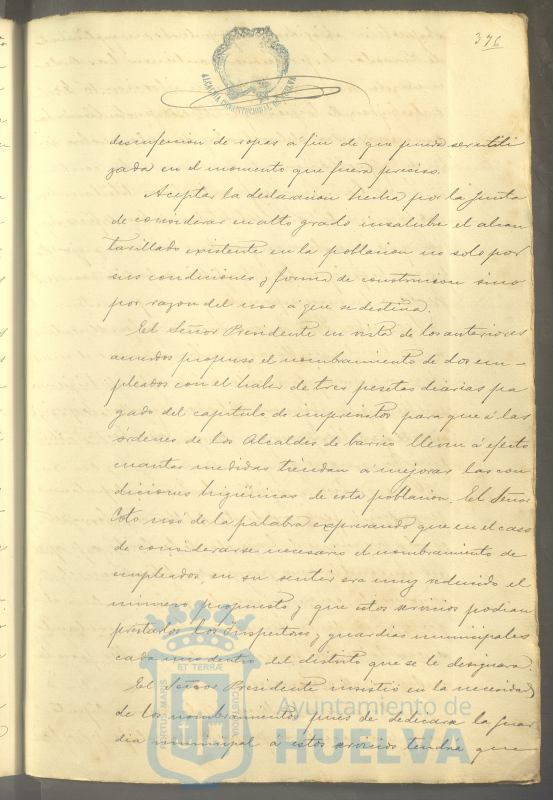 376
ALCALDIA CONSTITUCIONAL DE HUELVA
desinfeccion de ropas á fin de que pueda ser utili
zada en el momento que fuera preciso.
Aceptar la declaracion hecha por la Junta
de considerar en alto grado insalubre el alcan
tarillado existente en la poblacion no solo por
sus condiciones y forma de construccion sino
por razon del uso á que se destina.
El Señor Presidente en vista de los anteriores
acuerdos propuso el nombramiento de dos em-
pleados con el haber de tres pesetas diarias pa
gado del capitulo de imprevistos para que á las
órdenes de los Alcaldes de barrio lleven á efecto
cuantas medidas tiendan á mejorar las con
diciones higiénicas de esta poblacion. El Señor
Coto usó de la palabra expresando que en el caso
de considerarse necesario el nombramiento de
empleados, en su sentir era muy reducido el
número propuesto y que estos servicios podian
prestarlos los Inspectores y guardias municipales
cada uno dentro del distrito que se le designara.
El Señor Presidente insistió en la necesidad
de los nombramientos pues de dedicarse la guar
dia municipal á estos servicios tendria que
PORTUS MARIS ET TERRÆ CUSTODIA
Ayuntamiento de
HUELVA